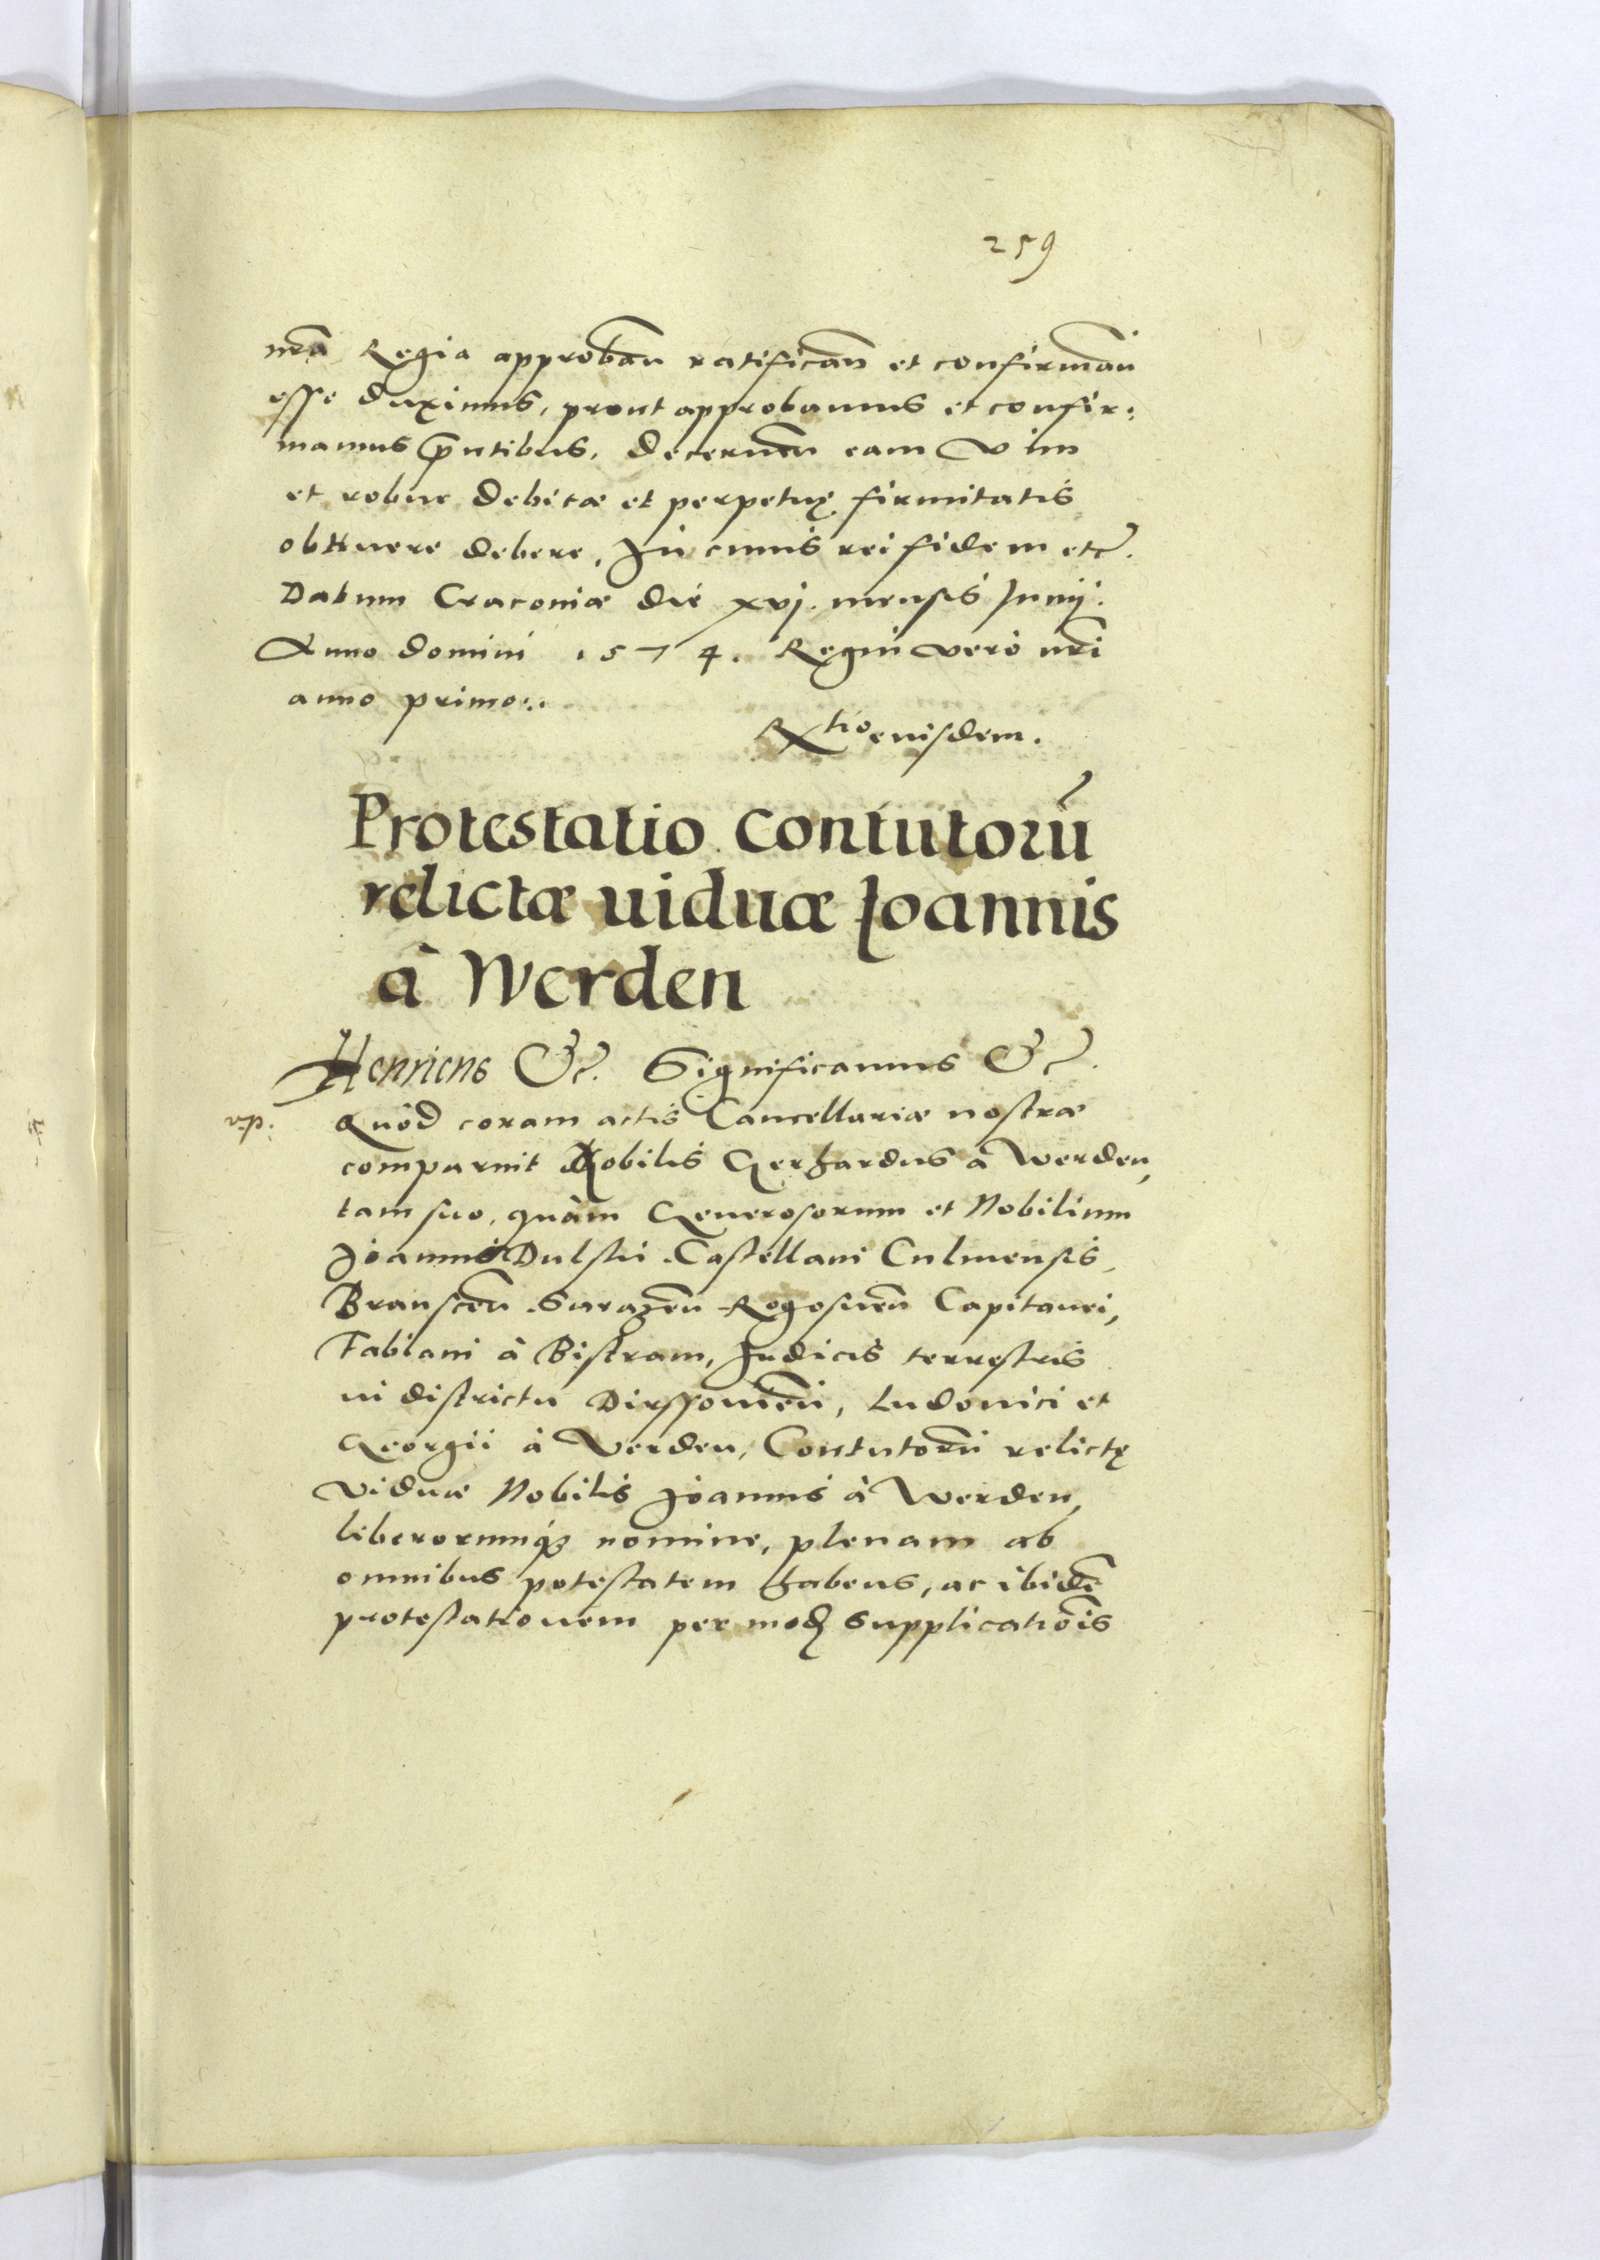 259
nr̃a Regia approbañ ratificañ et confirmañ
esse duximus, prout approbamus et confir:
mamus p̃ntibus. decerneñ eam vim
et robur debitæ et perpetuę firmitatis
obtinere debere. In cuius rei fidem etc.
Datum Cracoviæ die xvj. mensis Junij.
Anno domini 1574. Regni vero nr̃i
anno primo:.
Rtio eiusdem.
Protestatio contutorũ
relictæ uiduæ Joannis
à Werden
Henricus &c. Significamus &c.
v.p.
Quòd coram actis Cancellariæ nostræ
comparuit Nobilis Gerhardus à Werden,
tam suo, quàm Generosorum et Nobilium
Joannis Dulski Castellani Culmensis,
Bransceñ Surazeñ Rogosneñ Capitanei,
Fabiani à Bistram, Judicis terrestris
in districtu Dirssovieñ, Ludovici et
Georgii à Verden, Contutorũ relictę
viduæ Nobilis Joannis à Werden,
liberorumqꜟ nomine, plenam ab
omnibus potestatem habens, ac ibidẽ
protestationem per modũ supplicatiõis